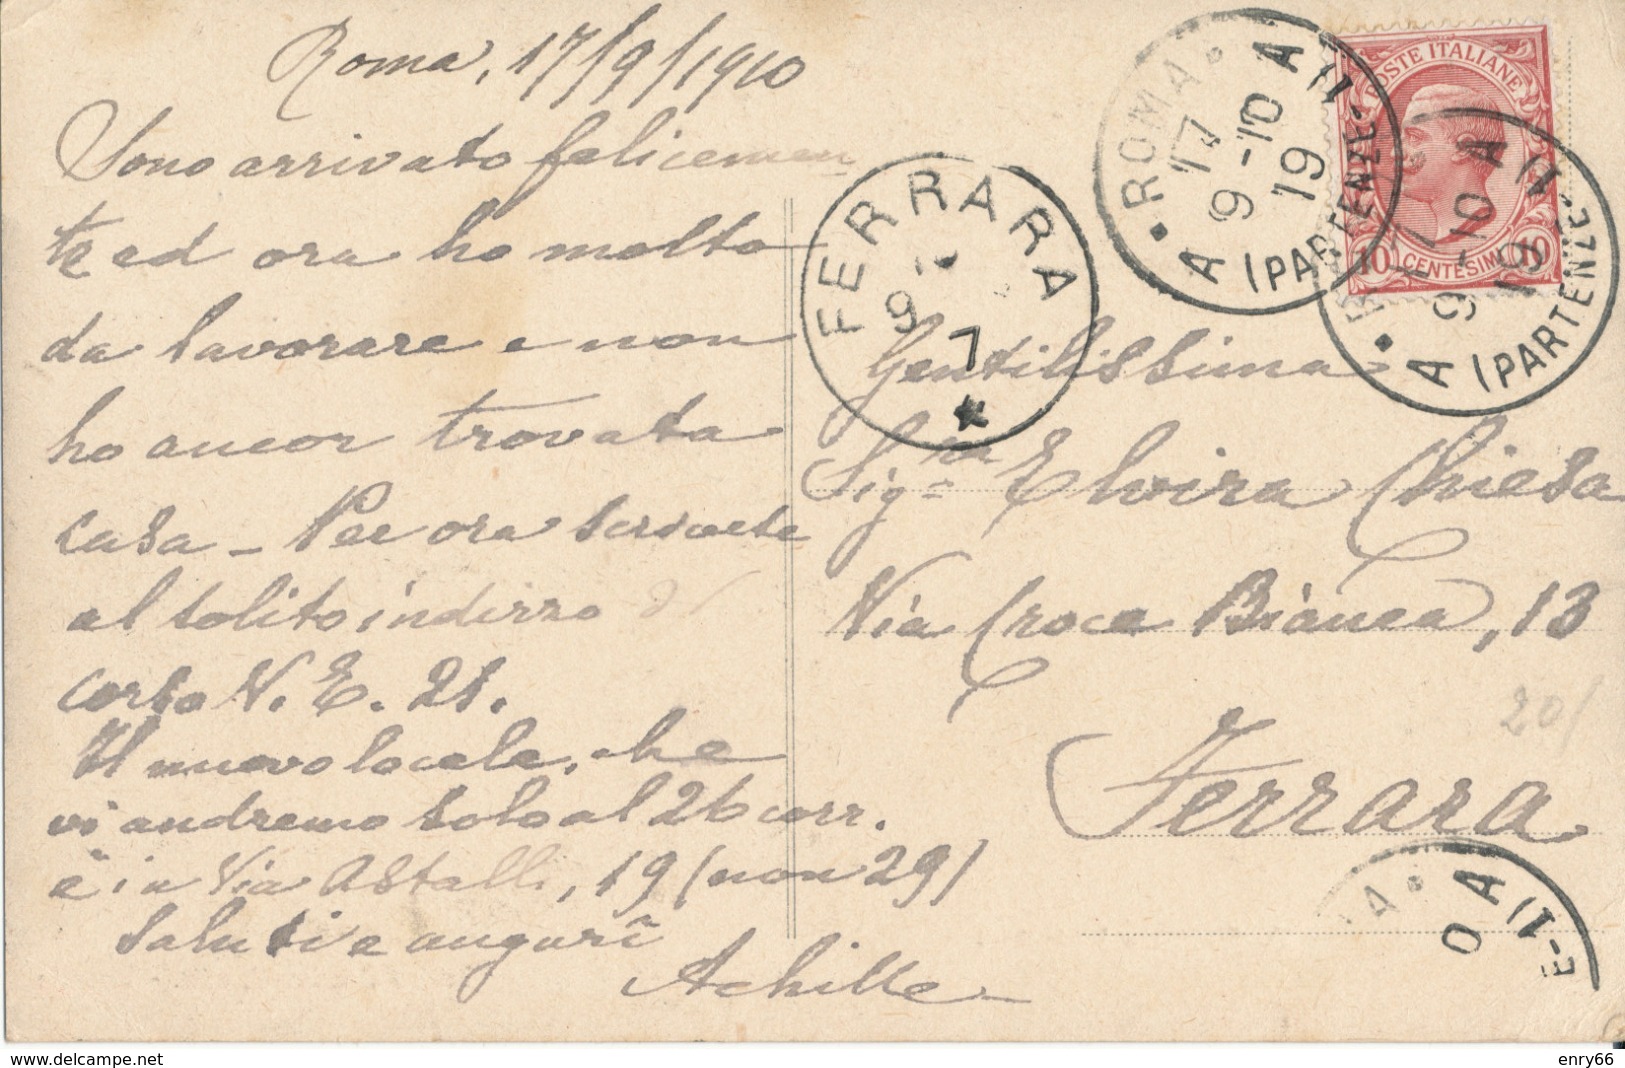 Roma, 17/9/1910
Sono arrivato felicemen
te ed ora ho molto
da lavorare e non
ho ancor trovata
casa - Per ora scrivete
al solito indirizzo di
corso V. E. 21.
Il nuovo locale, che
vi andremo solo al 26 corr.
è in Via Astalli, 19 (non 29)
Saluti e auguri
Achille
Gentilissima
Sig.ra Elvira Chiesa
Via Croce Bianca, 13
Ferrara
20/
POSTE ITALIANE
10 CENTESIMI 10
ROMA
17
A 9-10 A
19
(PARTENZE-1)
ROMA
17
A 9-10 A
19
(PARTENZE-1)
FERRARA
9
7
A
0 A
E-1)
enry66